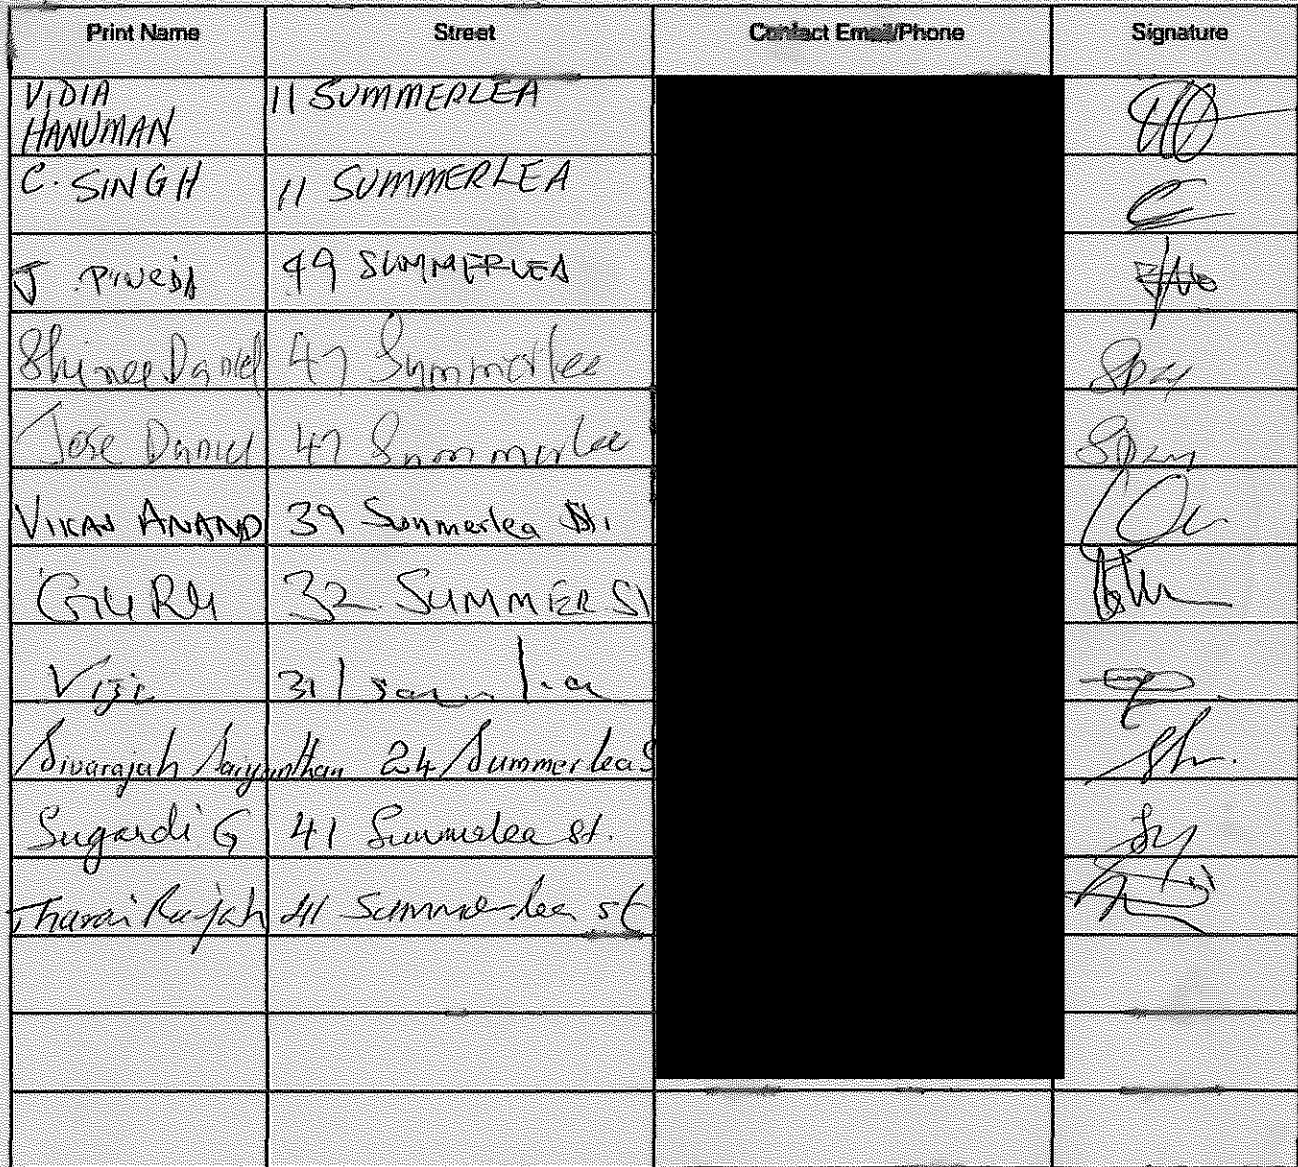 Print Name Street Contact Email/Phone Signature
VIDIA 11 SUMMERLEA
HANUMAN
C. SINGH 11 SUMMERLEA
J. 49 SUMMERLEA
Daniel 47 Summerlee
Jose Daniel 47 Summerlee
VIKAS ANAND 39 Summerlea St.
GURU 32 SUMMER St
Viji 31
Sivarajah 24 Summerlea S
Sugandi G 41 Summerlea st.
Tharai Rajah 41 Summerlea st